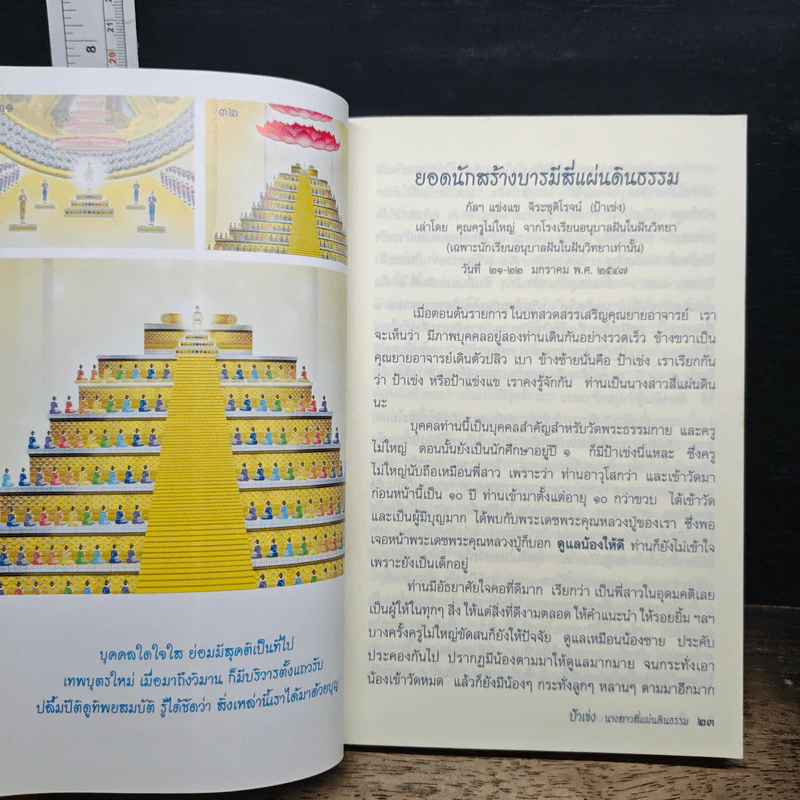 8
20
21
๓๑
๓๒
บุคคลใดใจใส ย่อมมีสุคติเป็นที่ไป
เทพบุตรใหม่ เมื่อมาถึงวิมาน ก็มีบริวารตั้งแถวรับ
ปลื้มปีติดูทิพยสมบัติ รู้ได้ชัดว่า สิ่งเหล่านี้เราได้มาด้วยบุญ
ยอดนักสร้างบารมีสี่แผ่นดินธรรม
กัลฯ แข่งแข จิระชุติโรจน์ (ป้าเข่ง)
เล่าโดย คุณครูไม่ใหญ่ จากโรงเรียนอนุบาลฝันในฝันวิทยา
(เฉพาะนักเรียนอนุบาลฝันในฝันวิทยาเท่านั้น)
วันที่ ๒๑-๒๒ มกราคม พ.ศ. ๒๕๔๗
เมื่อตอนต้นรายการ ในบทสวดสรรเสริญคุณยายอาจารย์ เรา
จะเห็นว่า มีภาพบุคคลอยู่สองท่านเดินกันอย่างรวดเร็ว ข้างขวาเป็น
คุณยายอาจารย์เดินตัวปลิว เบา ข้างซ้ายนั่นคือ ป้าเข่ง เราเรียกกัน
ว่า ป้าเข่ง หรือป้าแข่งแข เราคงรู้จักกัน ท่านเป็นนางสาวสี่แผ่นดิน
นะ
บุคคลท่านนี้เป็นบุคคลสำคัญสำหรับวัดพระธรรมกาย และครู
ไม่ใหญ่ ตอนนั้นยังเป็นนักศึกษาอยู่ปี ๑ ก็มีป้าเข่งนี่แหละ ซึ่งครู
ไม่ใหญ่นับถือเหมือนพี่สาว เพราะว่า ท่านอาวุโสกว่า และเข้าวัดมา
ก่อนหน้านี้เป็น ๑๐ ปี ท่านเข้ามาตั้งแต่อายุ ๑๐ กว่าขวบ ได้เข้าวัด
และเป็นผู้มีบุญมาก ได้พบกับพระเดชพระคุณหลวงปู่ของเรา ซึ่งพอ
เจอหน้าพระเดชพระคุณหลวงปู่ก็บอก ดูแลน้องให้ดี ท่านก็ยังไม่เข้าใจ
เพราะยังเป็นเด็กอยู่
ท่านมีอัธยาศัยใจคอที่ดีมาก เรียกว่า เป็นพี่สาวในอุดมคติเลย
เป็นผู้ให้ในทุกๆ สิ่ง ให้แต่สิ่งที่ดีงามตลอด ให้คำแนะนำ ให้รอยยิ้ม ฯลฯ
บางครั้งครูไม่ใหญ่ขัดสนก็ยังให้ปัจจัย ดูแลเหมือนน้องชาย ประคับ
ประคองกันไป ปรากฏมีน้องตามมาให้ดูแลมากมาย จนกระทั่งเอา
น้องเข้าวัดหมด แล้วก็ยังมีน้องๆ กระทั่งลูกๆ หลานๆ ตามมาอีกมาก
ป้าเข่ง นางสาวสี่แผ่นดินธรรม ๒๓